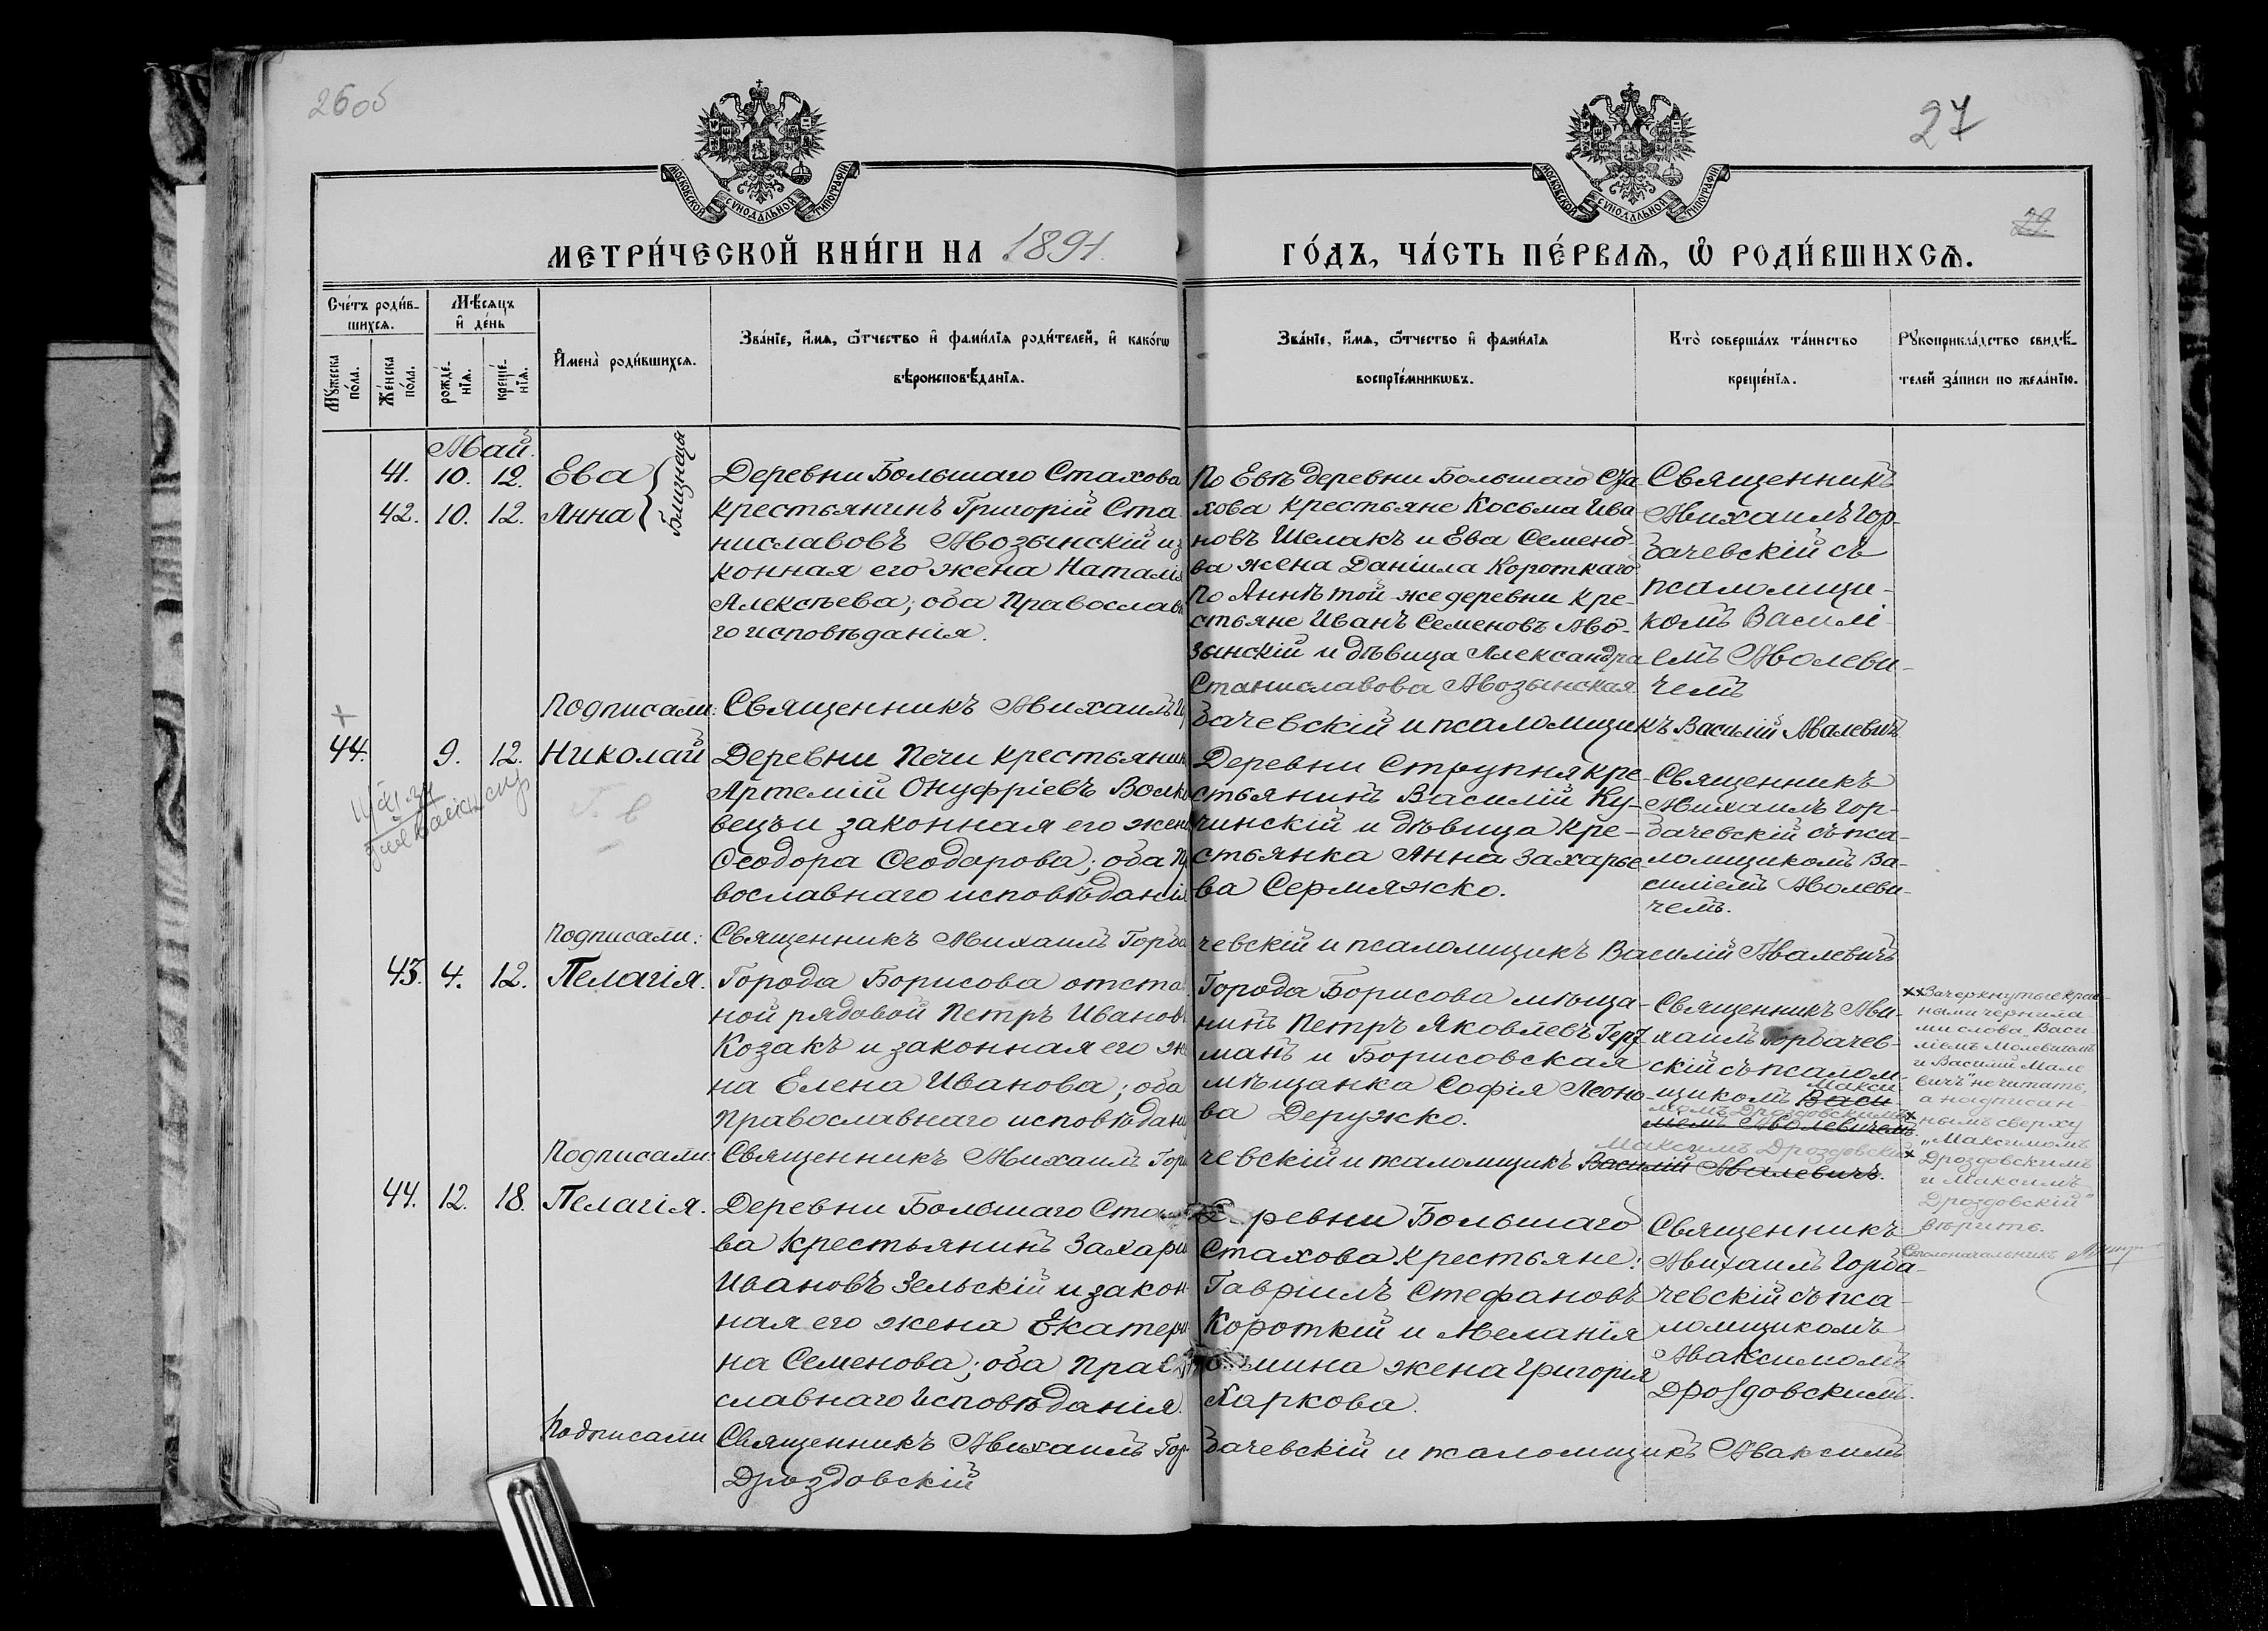 26об
27
29.
МОСКОВСКОЙ СѴНОДАЛЬНОЙ ТИПОГРАФІИ
МОСКОВСКОЙ СѴНОДАЛЬНОЙ ТИПОГРАФІИ
МЕТРИ́ЧЕСКОЙ КНИ́ГИ НА 1891.
ГО́ДЪ, ЧА́СТЬ ПЕ́РВАѦ, Ѡ РОДИ́ВШИХСѦ.
Сче́тъ роди́в-
шихсѧ.
Мꙋжеска по́ла.
Же́нска по́ла.
Мѣ́сѧцъ
и҆ де́нь
рожде́-
нїѧ.
креще́-
нїѧ.
И҆мена̀ роди́вшихсѧ.
Зва́нїе, и҆́мѧ, ѻ҆́тчество и҆ фами́лїѧ роди́телей, и҆ како́гѡ
вѣроисповѣ́данїѧ.
Зва́нїе, и҆́мѧ, ѻ҆́тчество и҆ фами́лїѧ
воспрїе́мникѡвъ.
Кто̀ соверша́лъ та́инство
креще́нїѧ.
Рꙋкоприкла́дство свидѣ́-
телей за́писи по жела́нїю.
Май.
41. 10. 12. Ева
42. 10. 12. Анна
близнецы
Деревни Большаго Стахова
крестьянинъ Григорій Ста-
ниславовъ Мозынскій и за
конная его жена Наталія
Алексѣева; оба Православ
го исповѣданія.
По Евѣ деревни Большаго Ста-
хова крестьяне Косьма Ива-
новъ Шелакъ и Ева Семено-
ва жена Даніила Короткаго
По Аннѣ той же деревни кре-
стьяне Иванъ Семеновъ Мо-
зынскій и дѣвица Александра
Станиславова Мозынская.
Священникъ
Михаилъ Гор-
бачевскій съ
псаломщи-
комъ Василі-
емъ Молеви-
чемъ
Подписали: Священникъ Михаилъ Гор
бачевскій и псаломщикъ Василій Малевичъ
44. 9. 12. Николай
Деревни Печи крестьянин
Артемій Онуфріевъ Волко
вецъ и законная его жена
Ѳеодора Ѳеодорова; оба Пр
вославнаго исповѣданія
Деревни Струпня кре-
стьянинъ Василій Ку-
чинскій и дѣвица кре-
стьянка Анна Захарье-
ва Сермяжко.
Священникъ
Михаилъ Гор-
бачевскій съ пса-
ломщикомъ Ва-
силіемъ Молеви-
чемъ.
Подписали: Священникъ Михаилъ Горба
чевскій и псаломщикъ Василій Малевичъ
43. 4. 12. Пелагія.
Города Борисова отста
ной рядовой Петръ Иванов
Козакъ и законная его же
на Елена Иванова; оба
Православнаго исповѣдані
Города Борисова мѣща-
нинъ Петръ Яковлевъ Гер
манъ и Борисовская
мѣщанка Софія Леоно-
ва Деружко.
Священникъ Ми-
хаилъ Горбачев-
скій съ псалом-
щикомъ Васи
Макси
момъ Дроздовскимъ x
ліемъ Молевичемъ.
xx Зачеркнутые крас-
ными чернила-
ми слова „Васи
ліемъ Молевичемъ
и Василій Мале
вичъ" не читать,
а надписан
нымъ сверху
„Максимомъ
Дроздовскимъ
и Максимъ
Дроздовскій"
вѣрить.
Столоначальникъ
Подписали: Священникъ Михаилъ Горба
чевскій и псаломщикъ Василій Малевичъ.
Максимъ Дроздовскій x
44. 12. 18. Пелагія.
Деревни Большаго Стахо
ва крестьянинъ Захарій
Ивановъ Зельскій и закон-
ная его жена Екатери
на Семенова; оба Право
славнаго исповѣданія.
Деревни Большаго
Стахова крестьяне:
Гавріилъ Стефановъ
Короткій и Меланія
мина жена Григорія
Харкова.
Священникъ
Михаилъ Горба-
чевскій съ пса-
ломщикомъ
Максимомъ
Дроздовскимъ.
Подписали Священникъ Михаилъ Гор-
бачевскій и псаломщикъ Максимъ
Дроздовскій